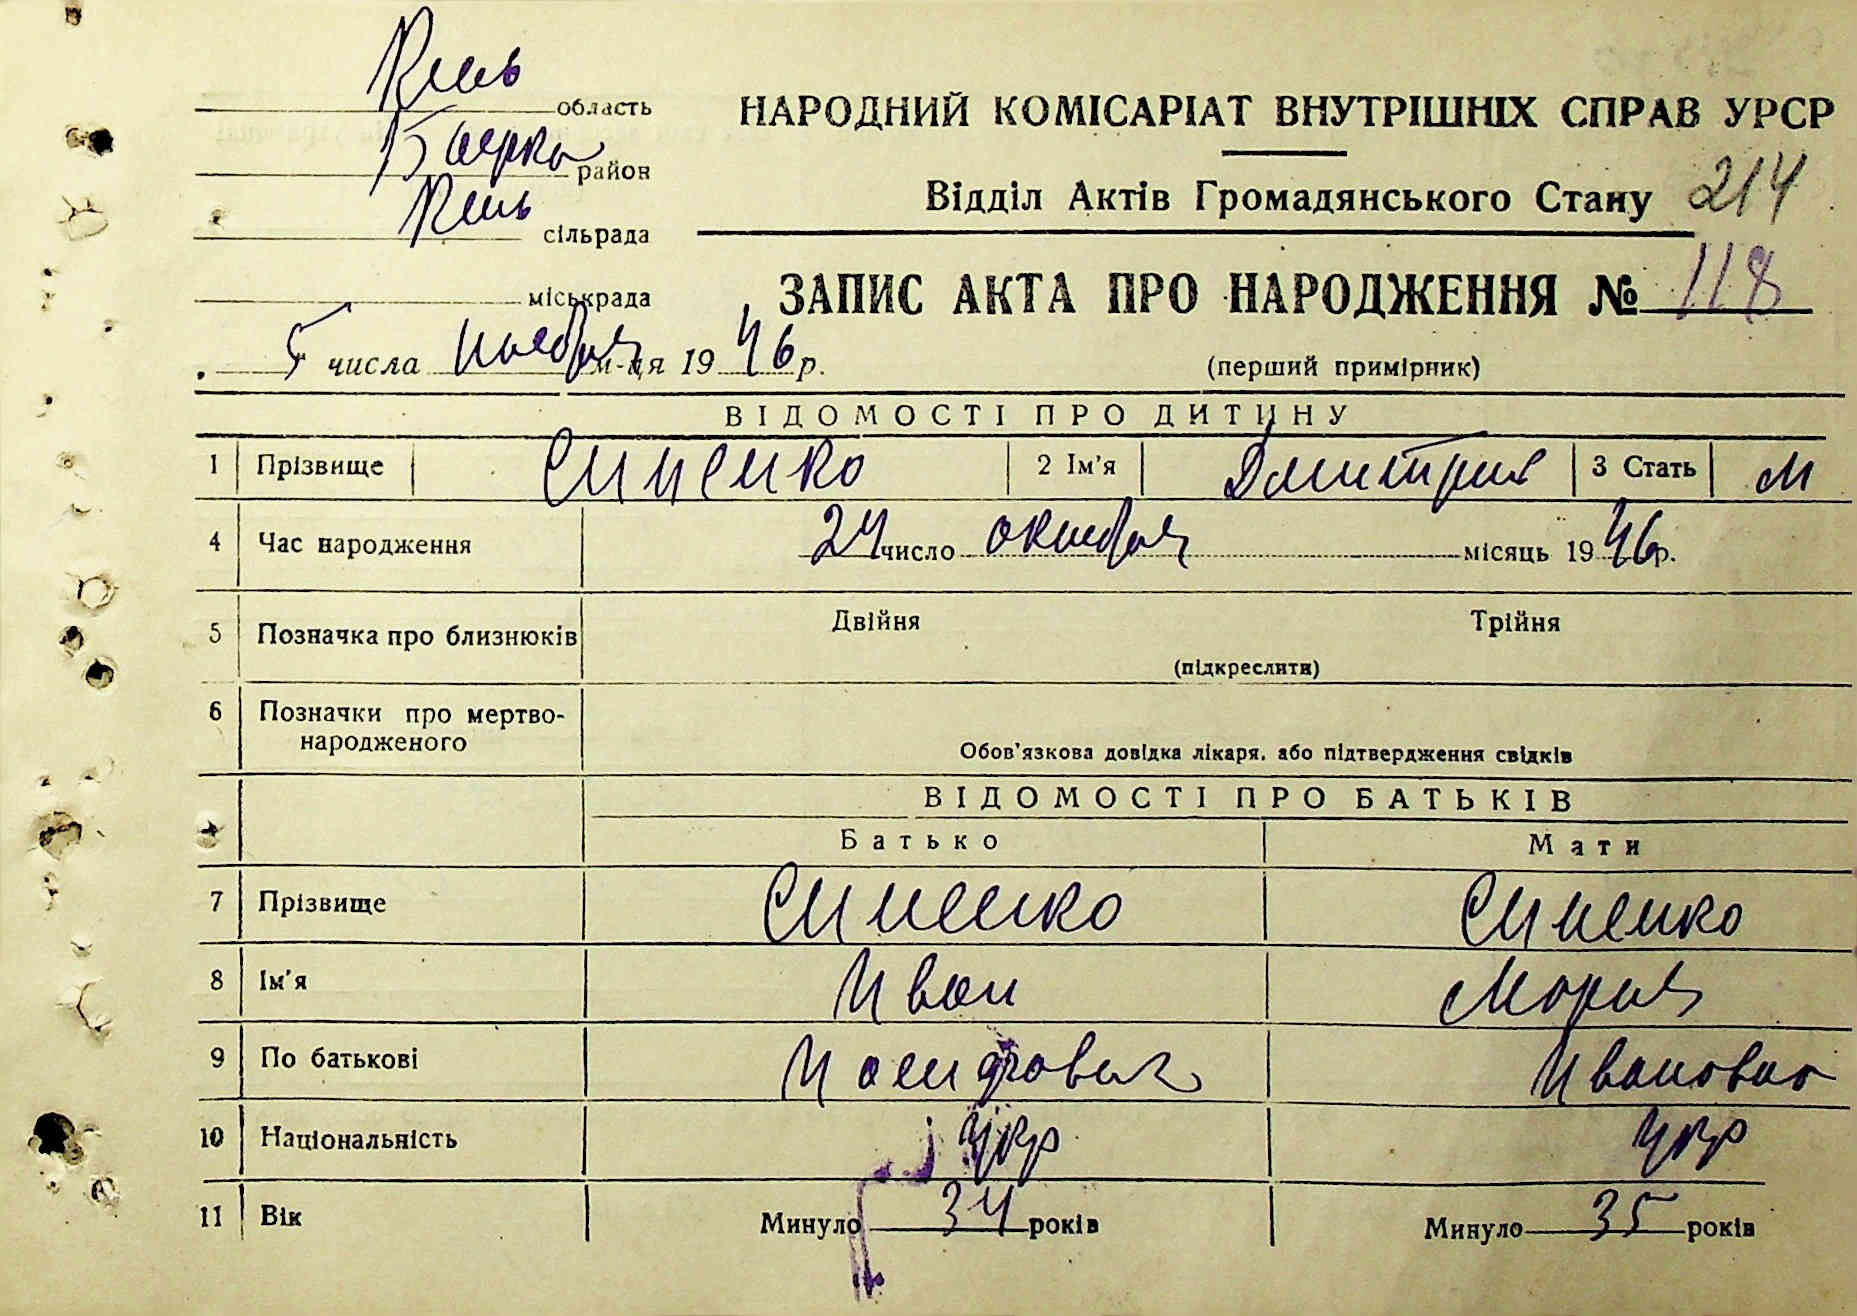 Киев область
Боярка район
Киев сільрада
міськрада
НАРОДНИЙ КОМІСАРІАТ ВНУТРІШНІХ СПРАВ УРСР
Відділ Актів Громадянського Стану 214
ЗАПИС АКТА ПРО НАРОДЖЕННЯ № 118
(перший примірник)
5 числа ноября м-ця 1946 р.
ВІДОМОСТІ ПРО ДИТИНУ
1 Прізвище Синенко 2 Ім'я Дмитрий 3 Стать М
4 Час народження 24 число октября місяць 1946 р.
5 Позначка про близнюків Двійня Трійня
(підкреслити)
6 Позначки про мертво-
народженого
Обов'язкова довідка лікаря, або підтвердження свідків
ВІДОМОСТІ ПРО БАТЬКІВ
Батько Мати
7 Прізвище Синенко Синенко
8 Ім'я Иван Мория
9 По батькові Ивановна
10 Національність укр укр
11 Вік Минуло 34 років Минуло 35 років